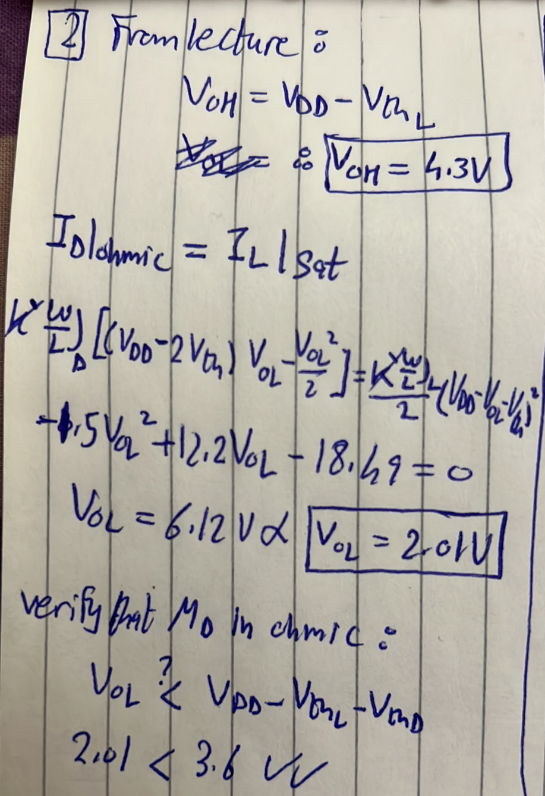 2 From lecture :
V_OH = V_DD - V_th_L
∴ V_OH = 4.3V
I_D|ohmic = I_L|Sat
K' W/L)_D [(V_DD - 2V_th) V_OL - V_OL²/2] = K' W/L)_L /2 (V_DD - V_OL - V_th)²
-1.5V_OL² + 12.2V_OL - 18.49 = 0
V_OL = 6.12 V α V_OL = 2.01V
verify that M_D in ohmic :
V_OL ?< V_DD - V_th_L - V_thD
2.01 < 3.6 ✓✓